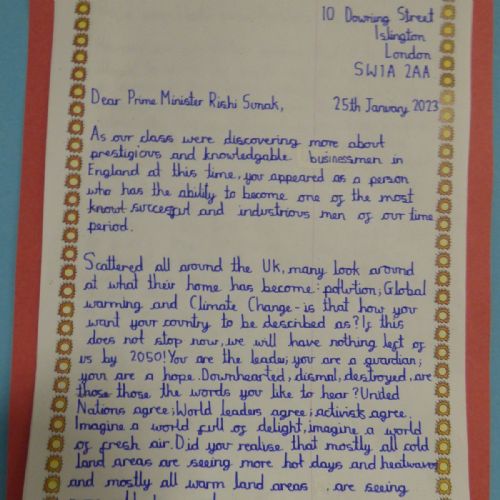 10 Downing Street
Islington
London
SW1A 2AA
Dear Prime Minister Rishi Sunak, 25th January 2023
As our class were discovering more about
prestigious and knowledgable businessmen in
England at this time, you appeared as a person
who has the ability to become one of the most
known successful and industrious men of our time
period.
Scattered all around the UK, many look around
at what their home has become: pollution; Global
warming and Climate Change - is that how you
want your country to be described as? If this
does not stop now, we will have nothing left of
us by 2050! You are the leader; you are a guardian;
you are a hope. Downhearted, dismal, destroyed, are
those those the words you like to hear? United
Nations agree; World leaders agree; activists agree.
Imagine a world full of delight, imagine a world
of fresh air. Did you realise that mostly all cold
land areas are seeing more hot days and heatwaves
and mostly all warm land areas are seeing